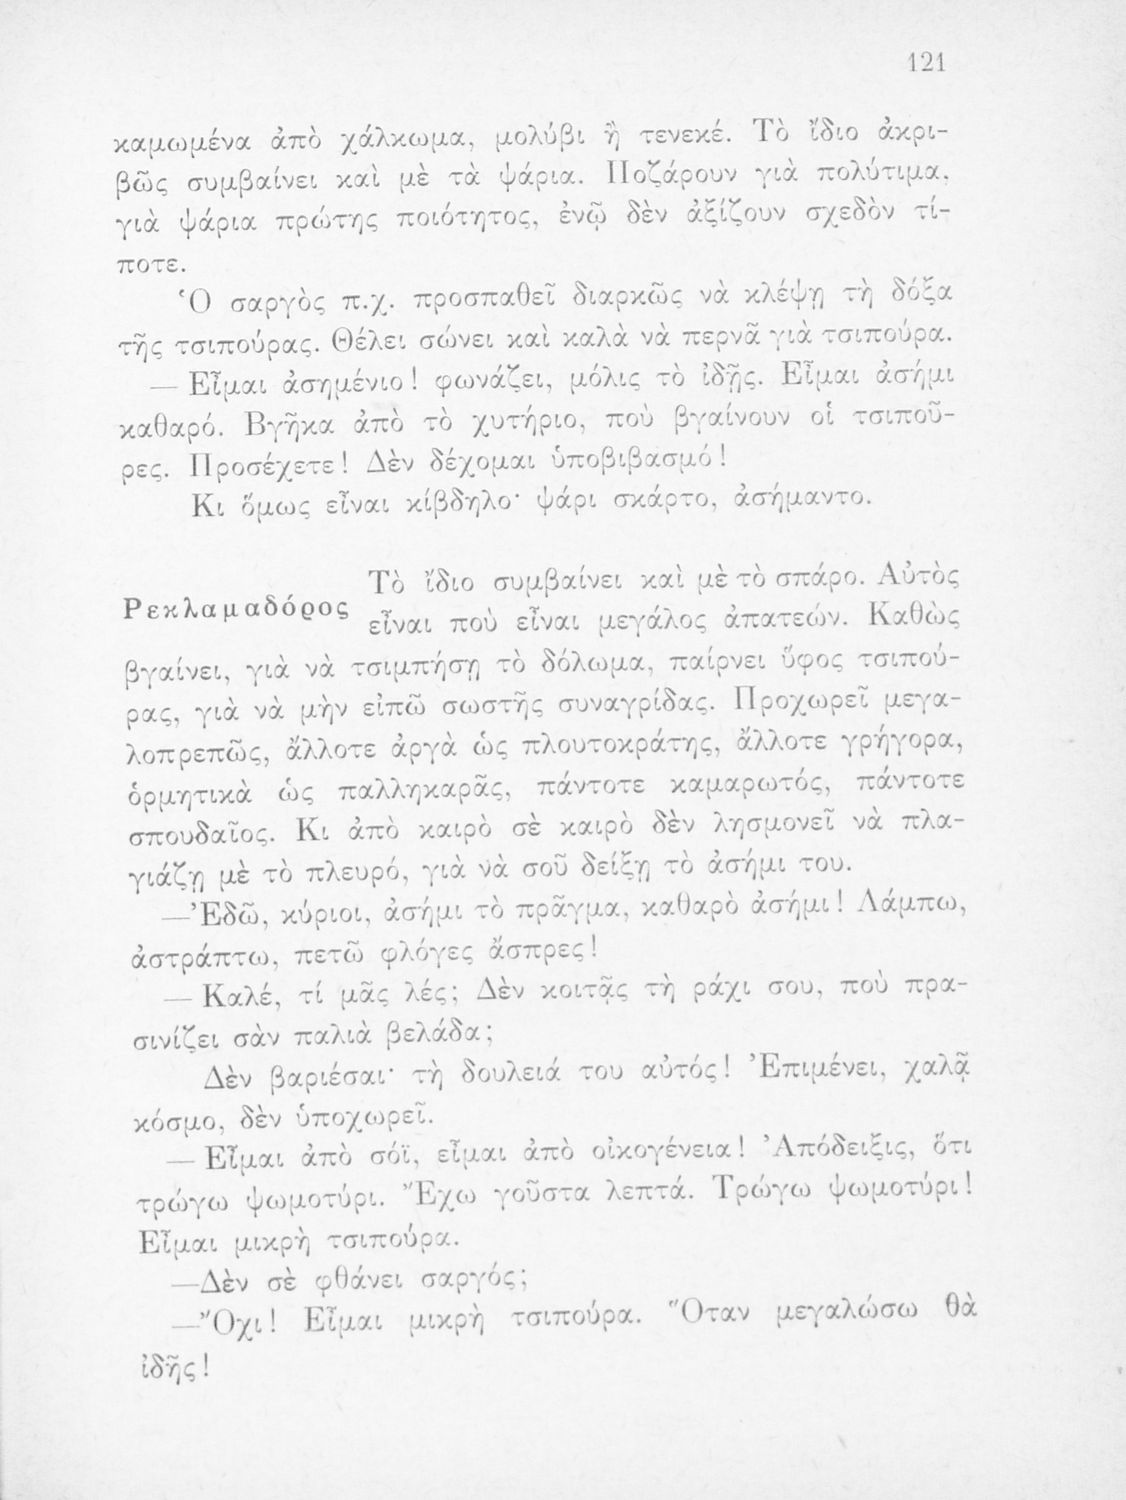 121
καμωμένα ἀπὸ χάλκωμα, μολύβι ἢ τενεκέ. Τὸ ἴδιο ἀκρι-
βῶς συμβαίνει καὶ μὲ τὰ ψάρια. Ποζάρουν γιὰ πολύτιμα,
γιὰ ψάρια πρώτης ποιότητος, ἐνῷ δὲν ἀξίζουν σχεδὸν τί-
ποτε.
Ὁ σαργὸς π.χ. προσπαθεῖ διαρκῶς νὰ κλέψῃ τὴ δόξα
τῆς τσιπούρας. Θέλει σώνει καὶ καλὰ νὰ περνᾶ γιὰ τσιπούρα.
— Εἶμαι ἀσημένιο! φωνάζει, μόλις τὸ ἰδῇς. Εἶμαι ἀσήμι
καθαρό. Βγῆκα ἀπὸ τὸ χυτήριο, ποὺ βγαίνουν οἱ τσιποῦ-
ρες. Προσέχετε! Δὲν δέχομαι ὑποβιβασμό!
Κι ὅμως εἶναι κίβδηλο· ψάρι σκάρτο, ἀσήμαντο.
Ρεκλαμαδόρος
Τὸ ἴδιο συμβαίνει καὶ μὲ τὸ σπάρο. Αὐτὸς
εἶναι ποὺ εἶναι μεγάλος ἀπατεών. Καθὼς
βγαίνει, γιὰ νὰ τσιμπήσῃ τὸ δόλωμα, παίρνει ὕφος τσιπού-
ρας, γιὰ νὰ μὴν εἰπῶ σωστῆς συναγρίδας. Προχωρεῖ μεγα-
λοπρεπῶς, ἄλλοτε ἀργὰ ὡς πλουτοκράτης, ἄλλοτε γρήγορα,
ὁρμητικὰ ὡς παλληκαρᾶς, πάντοτε καμαρωτός, πάντοτε
σπουδαῖος. Κι ἀπὸ καιρὸ σὲ καιρὸ δὲν λησμονεῖ νὰ πλα-
γιάζῃ μὲ τὸ πλευρό, γιὰ νὰ σοῦ δείξῃ τὸ ἀσήμι του.
—Ἐδῶ, κύριοι, ἀσήμι τὸ πρᾶγμα, καθαρὸ ἀσήμι! Λάμπω,
ἀστράπτω, πετῶ φλόγες ἄσπρες!
— Καλέ, τί μᾶς λές; Δὲν κοιτᾷς τὴ ράχι σου, ποὺ πρα-
σινίζει σὰν παλιὰ βελάδα;
Δὲν βαριέσαι· τὴ δουλειά του αὐτός! Ἐπιμένει, χαλᾷ
κόσμο, δὲν ὑποχωρεῖ.
— Εἶμαι ἀπὸ σόϊ, εἶμαι ἀπὸ οἰκογένεια! Ἀπόδειξις, ὅτι
τρώγω ψωμοτύρι. Ἔχω γοῦστα λεπτά. Τρώγω ψωμοτύρι!
Εἶμαι μικρὴ τσιπούρα.
—Δὲν σὲ φθάνει σαργός;
—Ὄχι! Εἶμαι μικρὴ τσιπούρα. Ὅταν μεγαλώσω θὰ
ἰδῆς!